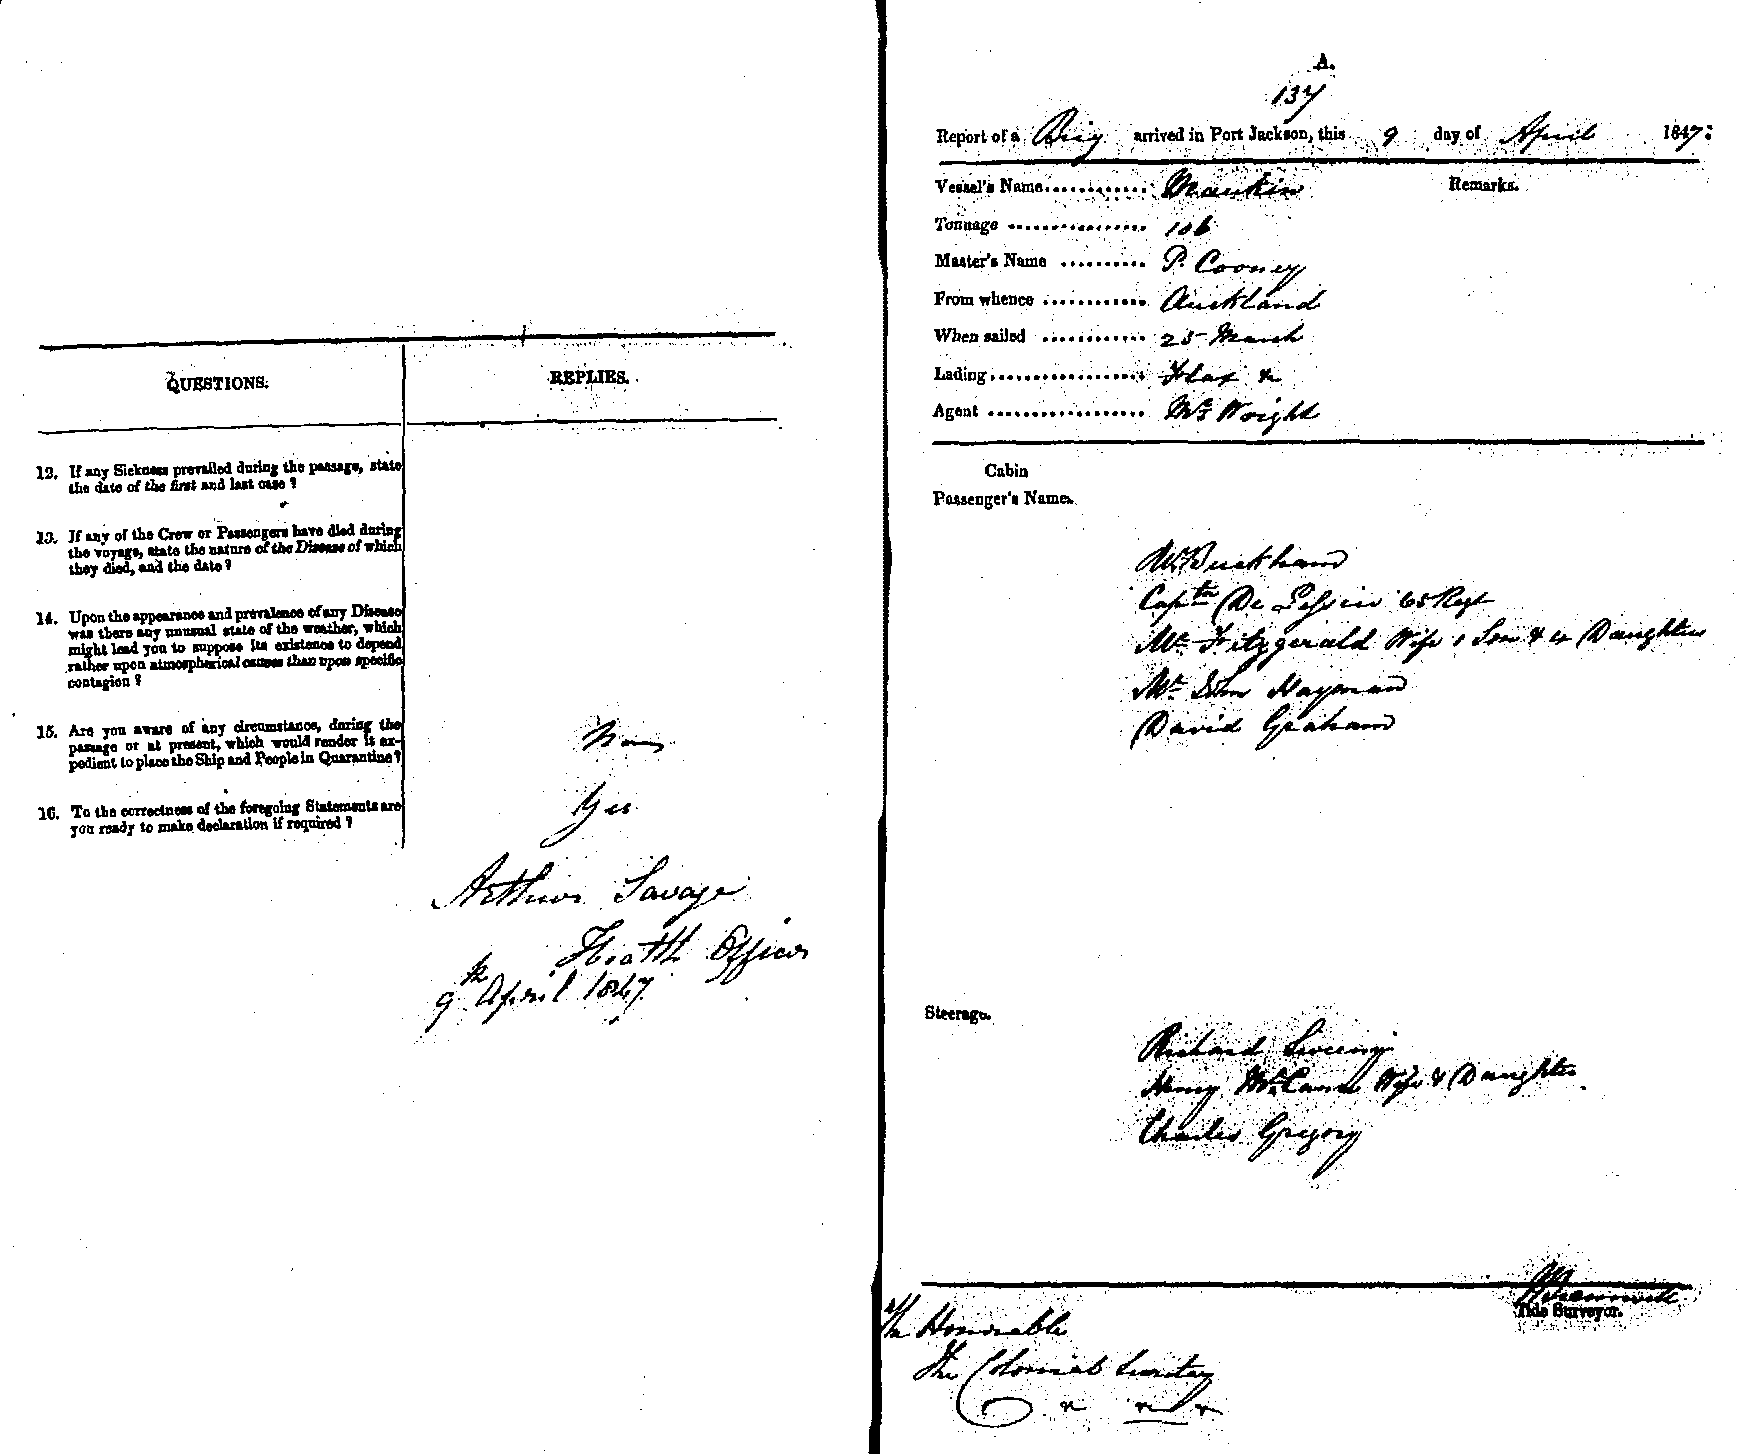 QUESTIONS.
REPLIES.
12. If any Sickness prevailed during the passage, state
the date of the first and last case ?
13. If any of the Crew or Passengers have died during
the voyage, state the nature of the Disease of which
they died, and the date ?
14. Upon the appearance and prevalence of any Disease
was there any unusual state of the weather, which
might lead you to suppose its existence to depend
rather upon atmospherical causes than upon specific
contagion ?
15. Are you aware of any circumstance, during the
passage or at present, which would render it ex-
pedient to place the Ship and People in Quarantine ?
None
16. To the correctness of the foregoing Statements are
you ready to make declaration if required ?
Yes
Arthur Savage
Health Officer
9th April 1847
A.
137
Report of a Brig arrived in Port Jackson, this 9 day of April 1847:
Vessel's Name Maukin
Remarks.
Tonnage 106
Master's Name P. Cooney
From whence Auckland
When sailed 25 March
Lading Flax &c
Agent Mr Wright
Cabin
Passenger's Name.
Mr Buckham
Captn De 65 Regt
Mr Fitzgerald Wife 1 Son & 4 Daughters
Mr Hayman
David Graham
Steerage.
Richard Sweeny
Henry McCann Wife & Daughter
Charles Gregory
Tide Surveyor.
The Honorable
The Colonial Secretary